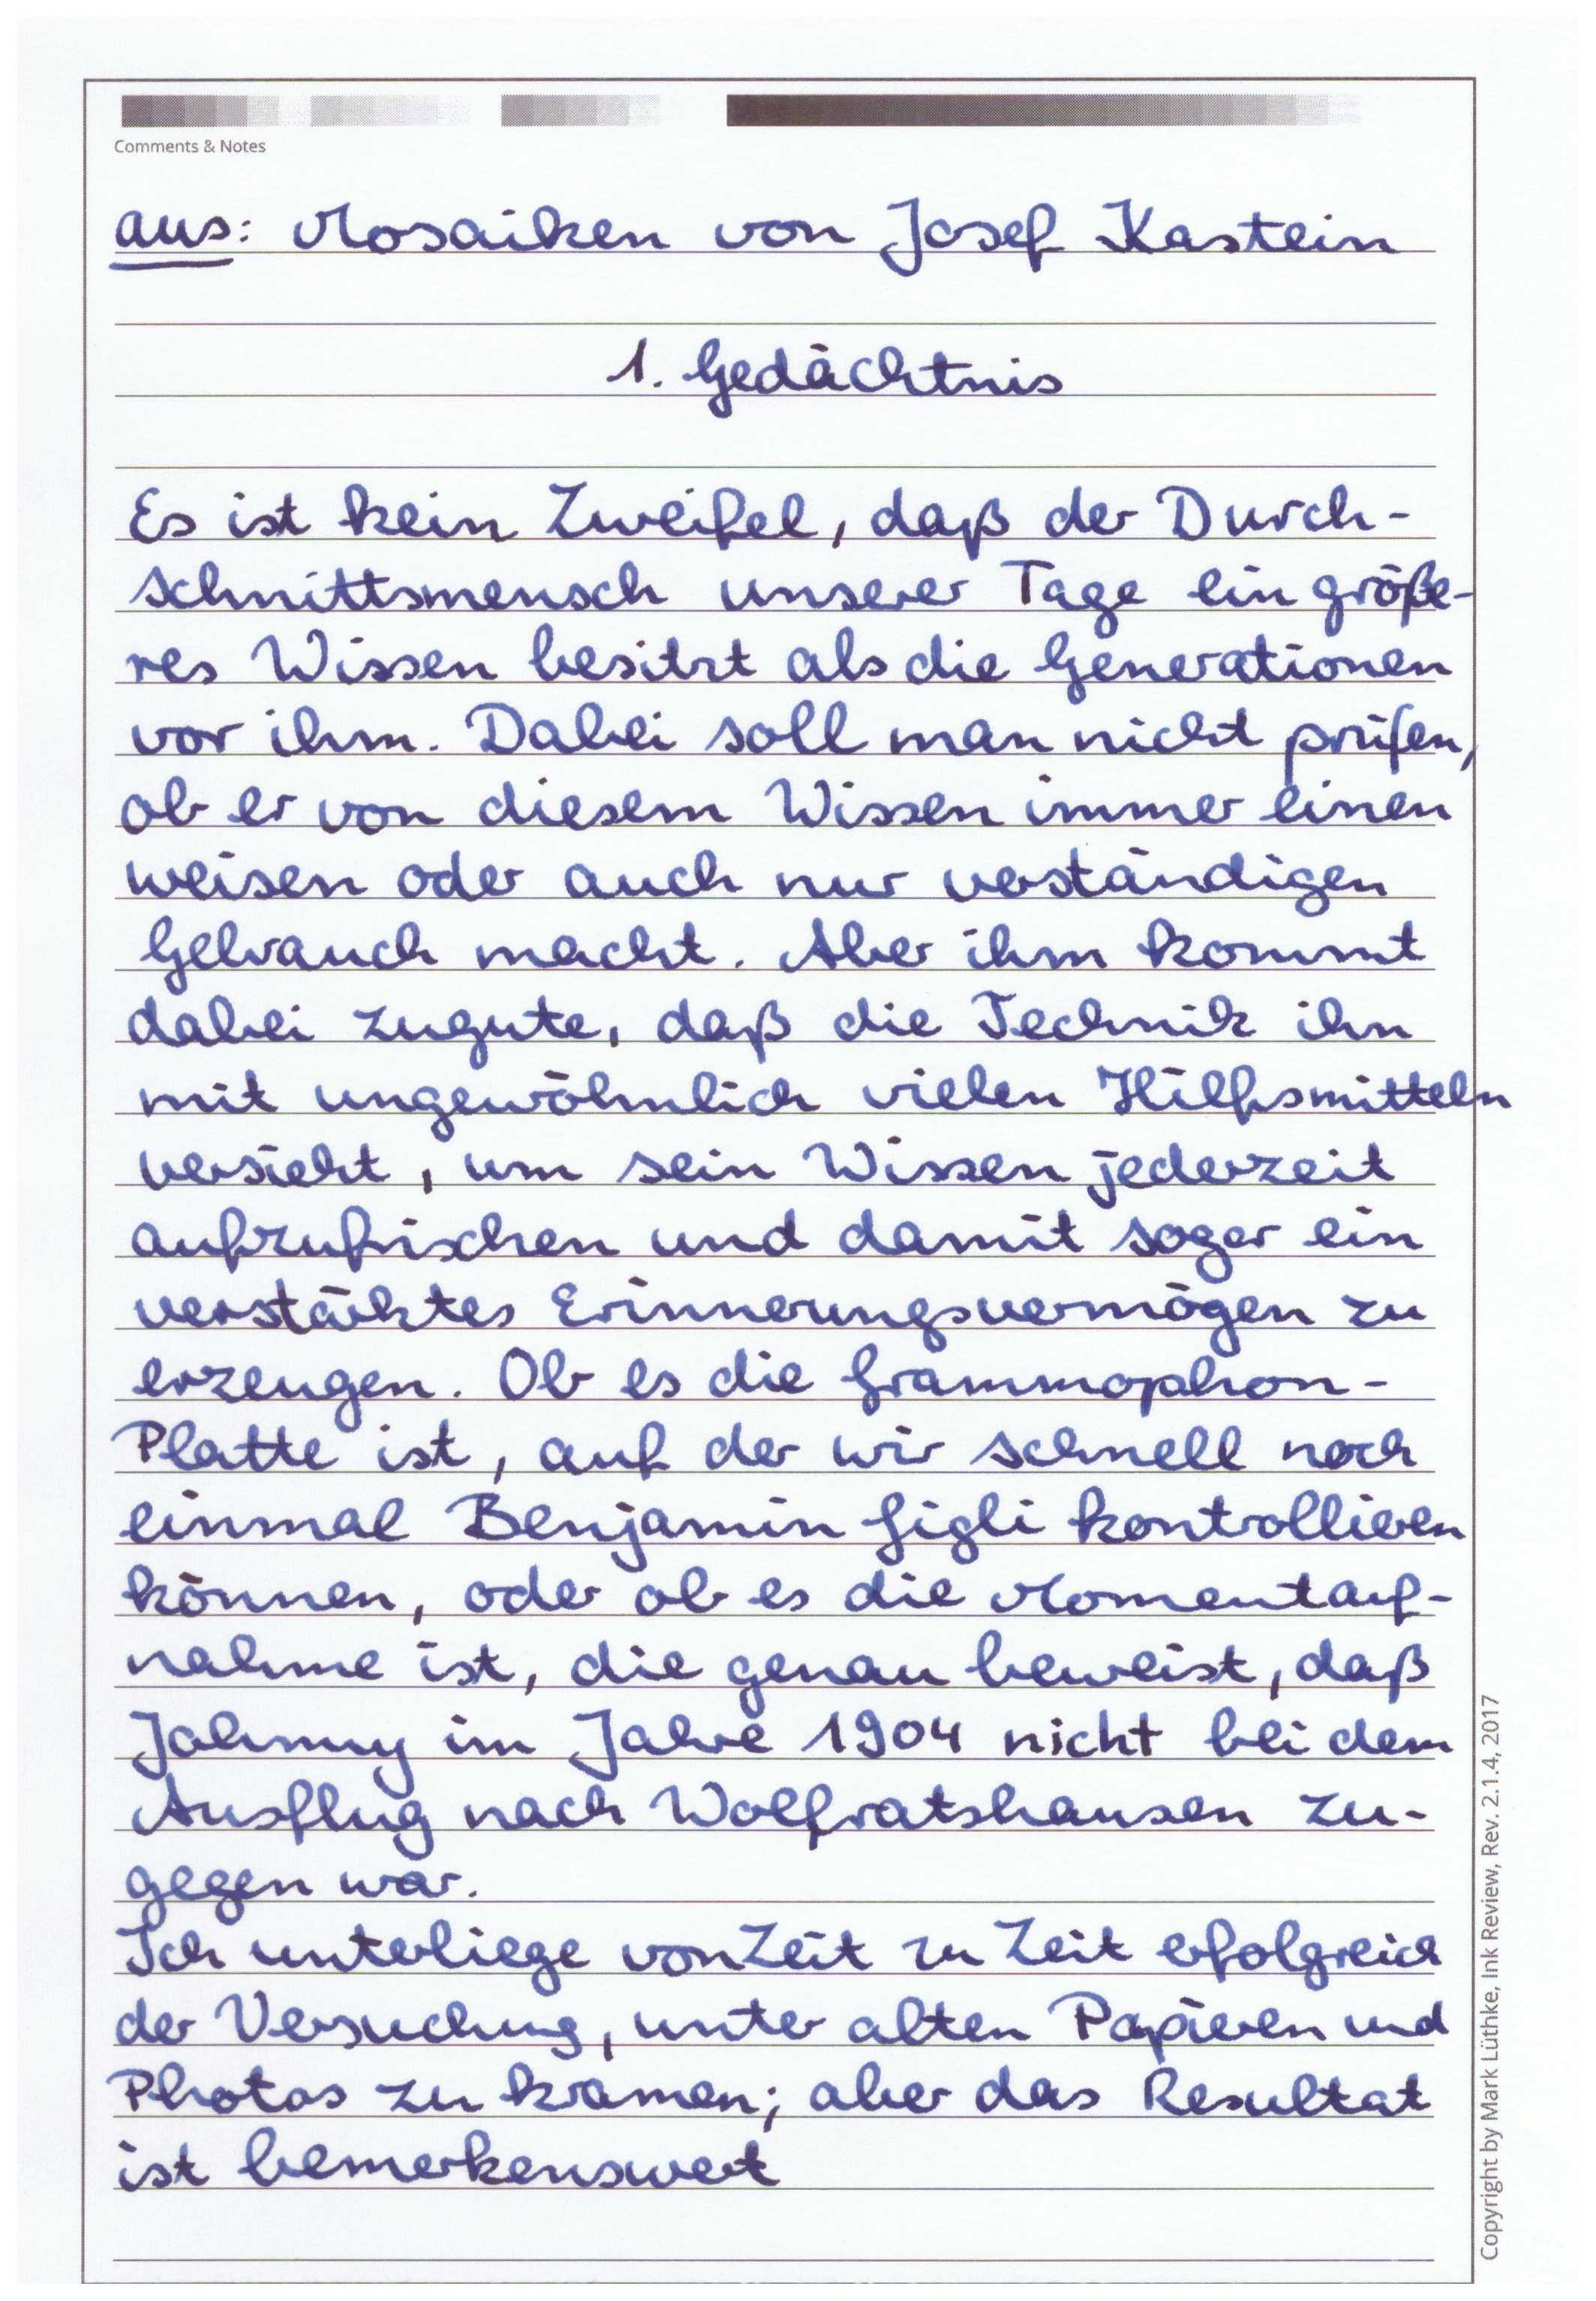 Comments & Notes
aus: Mosaiken von Josef Kastein
1. Gedächtnis
Es ist kein Zweifel, daß der Durch-
schnittsmensch unserer Tage ein größe-
res Wissen besitzt als die Generationen
vor ihm. Dabei soll man nicht prüfen,
ob er von diesem Wissen immer einen
weisen oder auch nur verständigen
Gebrauch macht. Aber ihm kommt
dabei zugute, daß die Technik ihn
mit ungewöhnlich vielen Hilfsmitteln
versieht, um sein Wissen jederzeit
aufzufrischen und damit sogar ein
verstärktes Erinnerungsvermögen zu
erzeugen. Ob es die Grammophon-
Platte ist, auf der wir schnell noch
einmal Benjamin Gigli kontrollieren
können, oder ob es die Momentauf-
nahme ist, die genau beweist, daß
Johnny im Jahre 1904 nicht bei dem
Ausflug nach Wolfratshausen zu-
gegen war.
Ich unterliege von Zeit zu Zeit erfolgreich
der Versuchung, unter alten Papieren und
Photos zu kramen; aber das Resultat
ist bemerkenswert
Copyright by Mark Lüthke, Ink Review, Rev. 2.1.4, 2017